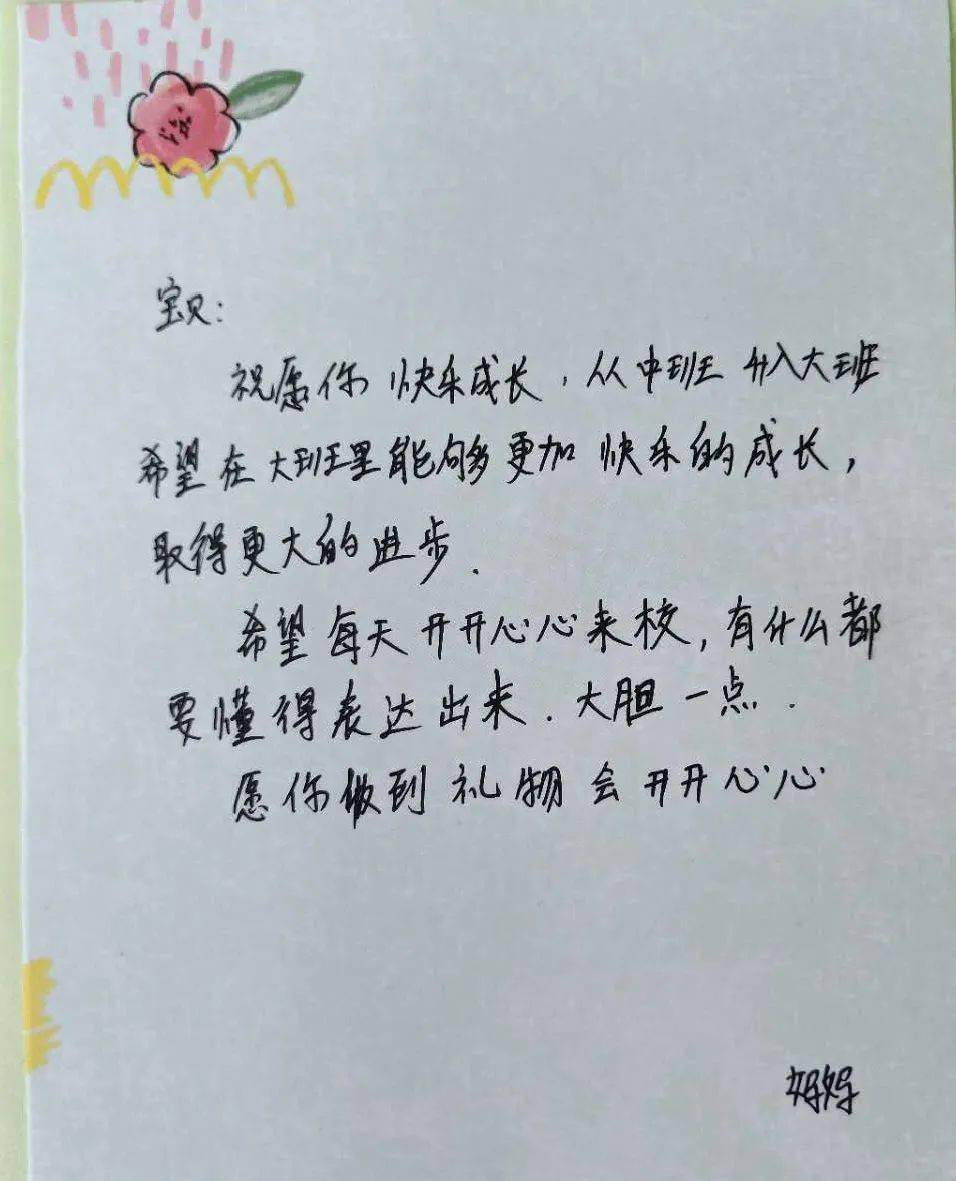 宝贝：
祝愿你快乐成长，从中班升入大班
希望在大班里能够更加快乐的成长，
取得更大的进步．
希望每天开开心心来校，有什么都
要懂得表达出来．大胆一点．
愿你做到礼物会开开心心
妈妈